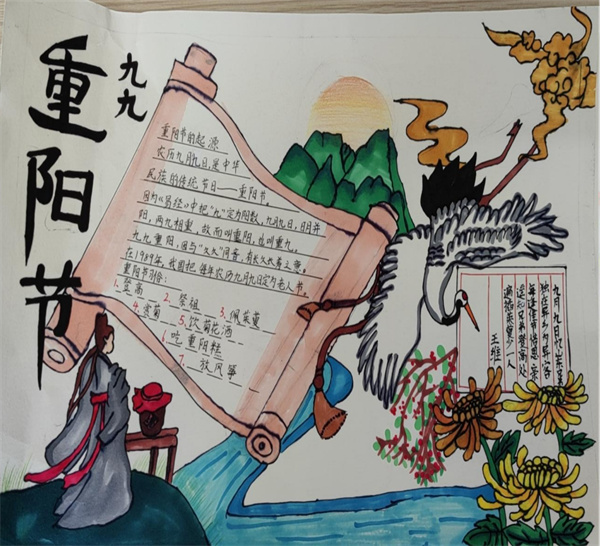 重阳节
九九
重阳节的起源
农历九月九日,是中华
民族的传统节日——重阳节。
因为《易经》中把“九”定为阳数,九月九日,日月并
阳,两九相重,故而叫重阳,也叫重九。
九九重阳,因与“久久”同音,有长久长寿之意。
在1989年,我国把每年农历九月九日定为老人节。
重阳节习俗:
1、登高 2、祭祖 3、佩茱萸
4、赏菊 5、饮菊花酒
6、吃重阳糕
7、放风筝
九月九日忆山东
独在异乡为异客
每逢佳节倍思亲
遥知兄弟登高处
遍插茱萸少一人
王维